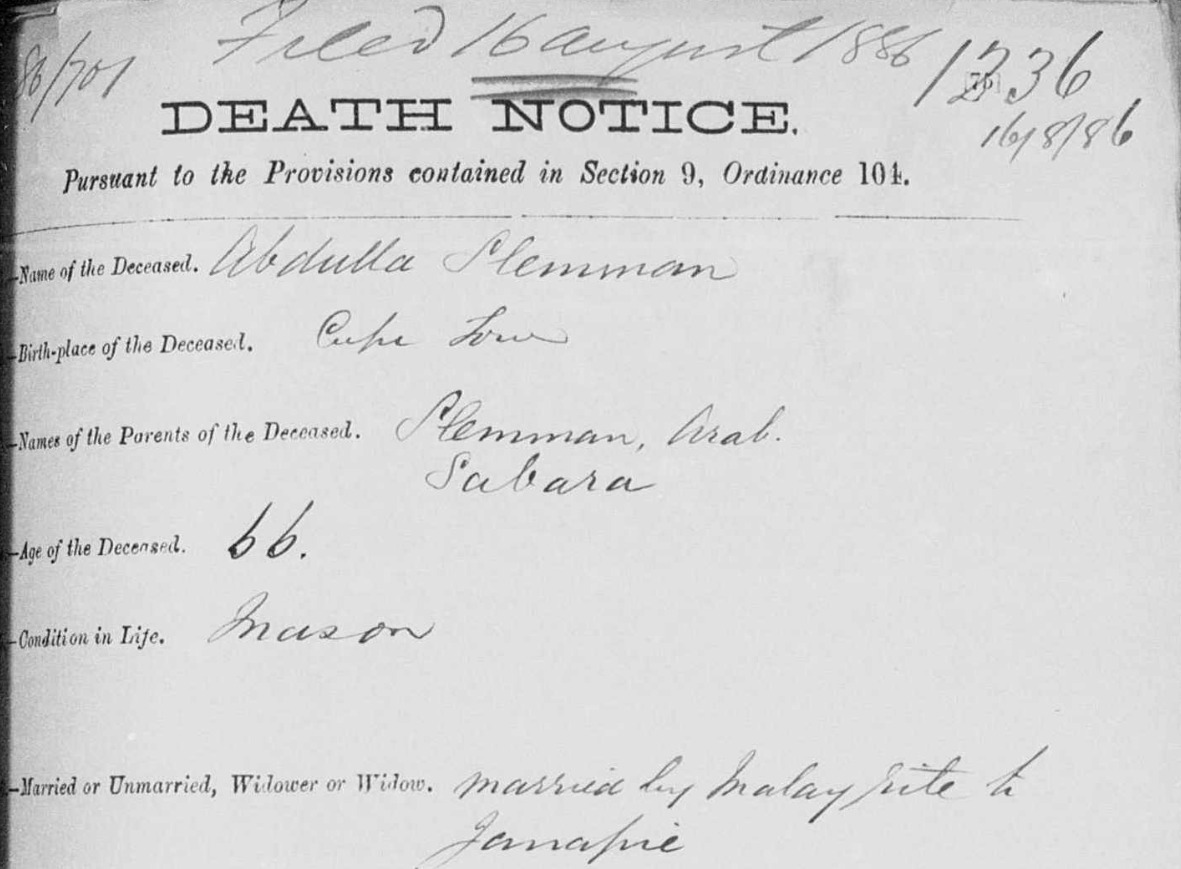 86/701 Filed 16 August 1886 1236
16/8/86
DEATH NOTICE.
Pursuant to the Provisions contained in Section 9, Ordinance 104.
—Name of the Deceased. Abdulla Slemman
—Birth-place of the Deceased. Cape Town
—Names of the Parents of the Deceased. Slemman, Arab.
Sabara
—Age of the Deceased. 66.
—Condition in Life. Mason
—Married or Unmarried, Widower or Widow. married by Malay rite to
Janapie